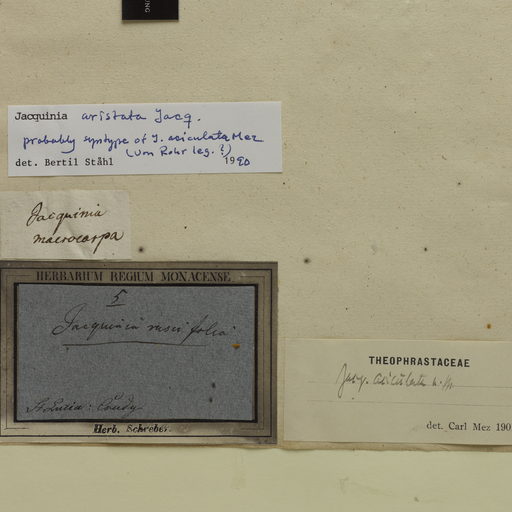 Jacquinia aristata Jacq.
probably syntype of J. aciculata Mez
(von Rohr leg.?)
det. Bertil Ståhl 1990
Jacquinia
macrocarpa
HERBARIUM REGIUM MONACENSE
5
Jacquinia ruscifolia
St Lucia: Crudy
Herb. Schreber.
THEOPHRASTACEAE
Jacq. aciculata
det. Carl Mez 190